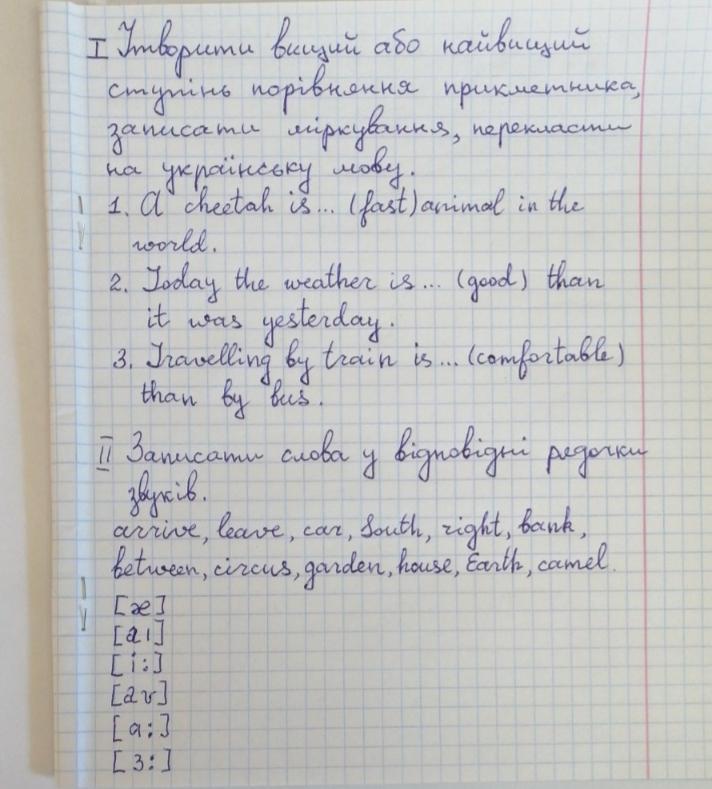 I Утворити вищий або найвищий
ступінь порівняння прикметника,
записати міркування, перекласти
на українську мову.
1. A cheetah is... (fast) animal in the
world.
2. Today the weather is... (good) than
it was yesterday.
3. Travelling by train is... (comfortable)
than by bus.
II Записати слова у відповідні рядочки
звуків.
arrive, leave, car, South, right, bank,
between, circus, garden, house, Earth, camel.
[æ]
[aı]
[i:]
[aʊ]
[a:]
[3:]